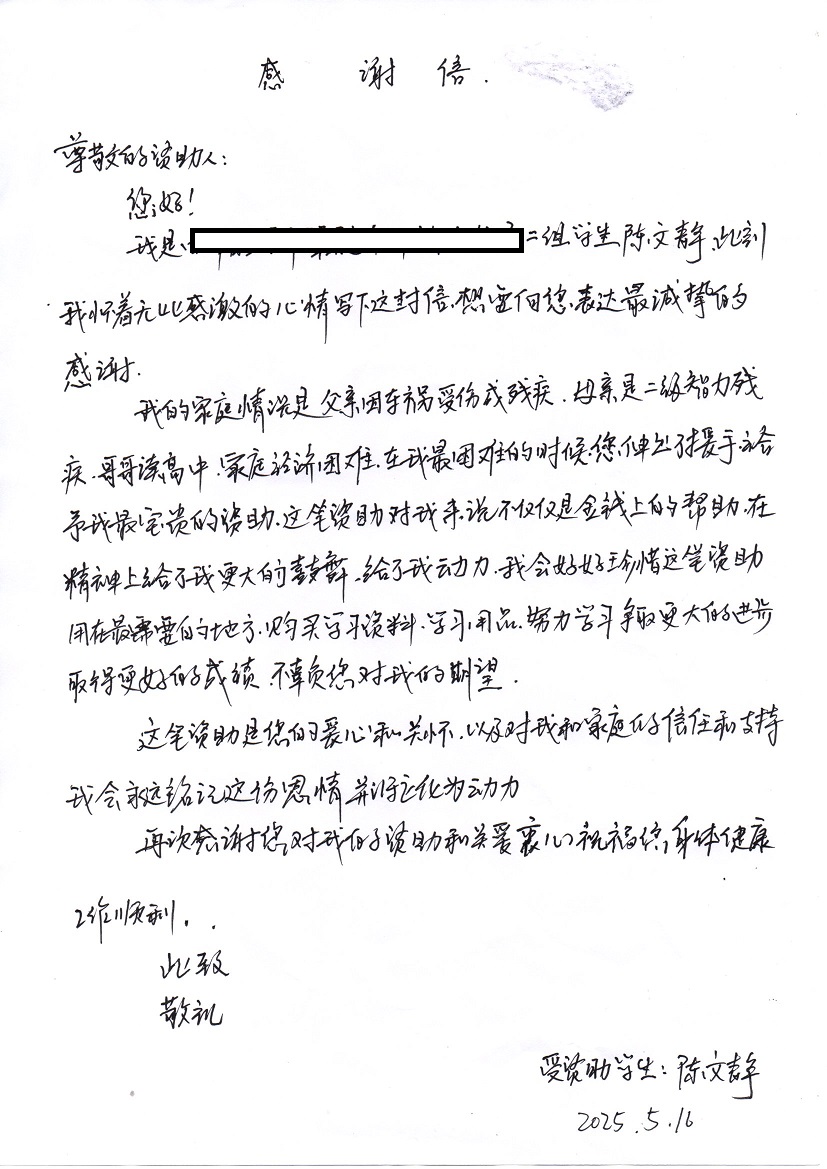 感 谢 信.
尊敬的资助人:
您好!
我是 二组学生陈文静,此刻
我怀着无比感激的心情写下这封信,想要向您表达最诚挚的
感谢.
我的家庭情况是父亲因车祸受伤成残疾,母亲是二级智力残
疾,哥哥读高中,家庭经济困难,在我最困难的时候,您伸出了援手,给
予我最宝贵的资助,这笔资助对我来说不仅仅是金钱上的帮助,在
精神上给了我更大的鼓舞,给了我动力,我会好好珍惜这笔资助
用在最需要的地方,购买学习资料,学习用品,努力学习争取更大的进步
取得更好的成绩,不辜负您对我的期望.
这笔资助是您的爱心和关怀,以及对我和家庭的信任和支持
我会永远铭记这份恩情并将它化为动力
再次感谢您对我的资助和关爱衷心祝福您,身体健康
工作顺利..
此致
敬礼
受资助学生:陈文静
2025.5.16